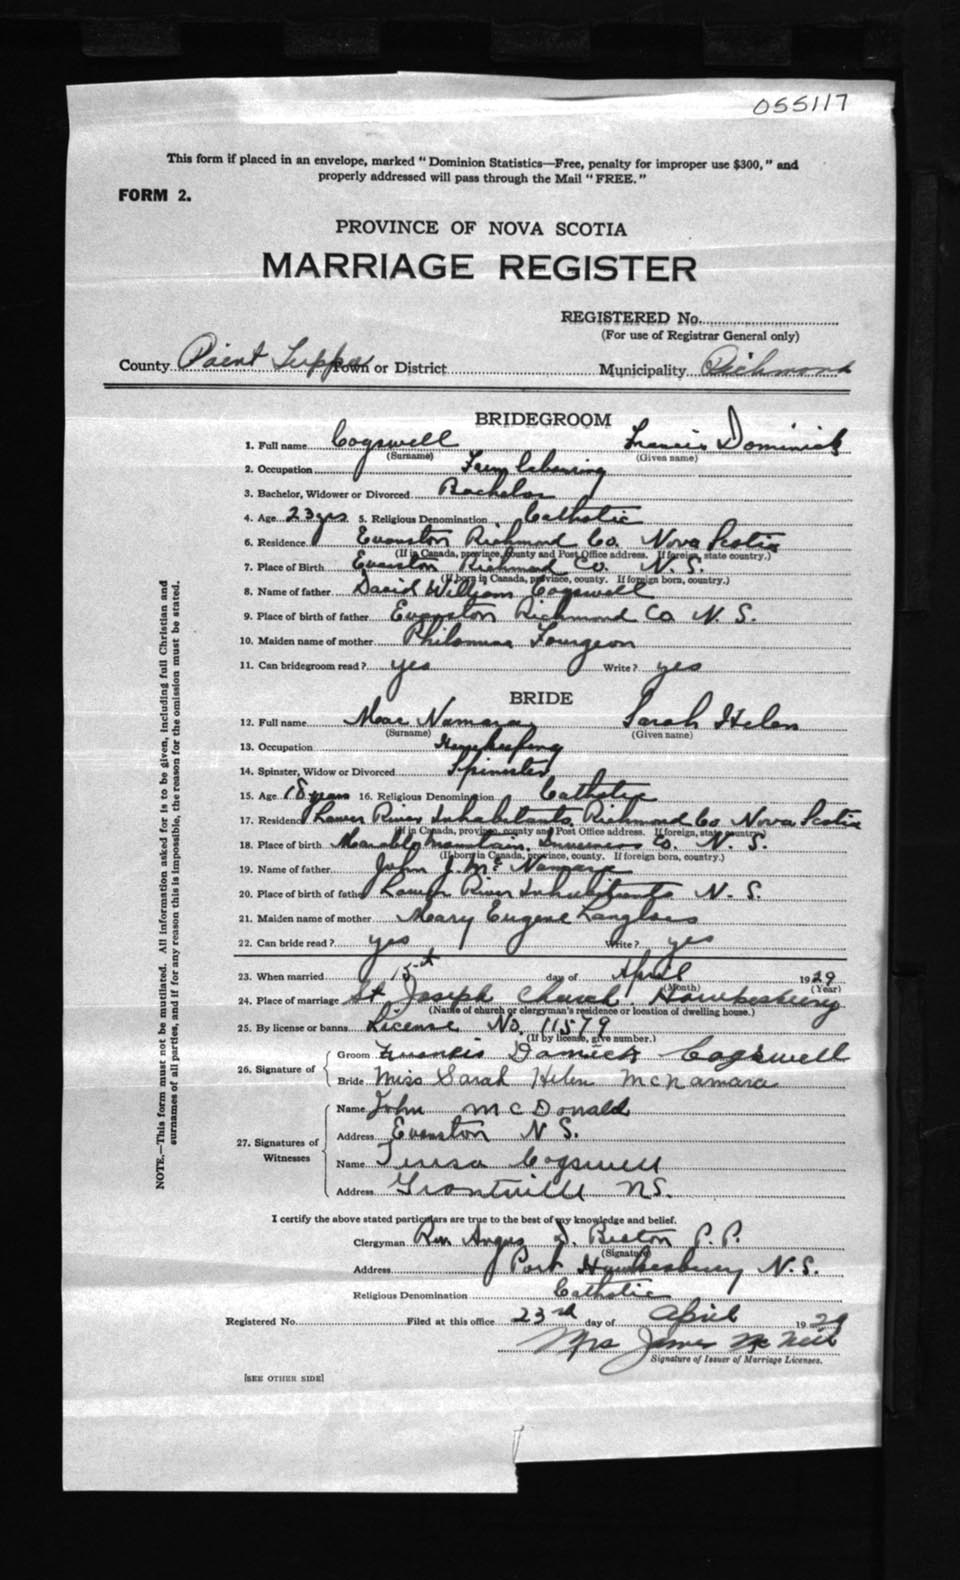 055117
This form if placed in an envelope, marked "Dominion Statistics—Free, penalty for improper use $300," and
properly addressed will pass through the Mail "FREE."
FORM 2.
PROVINCE OF NOVA SCOTIA
MARRIAGE REGISTER
REGISTERED No.
(For use of Registrar General only)
County Point Tupper Town or District Municipality Richmond
BRIDEGROOM
1. Full name Cogswell Francis Dominick
(Surname) (Given name)
2. Occupation
3. Bachelor, Widower or Divorced Bachelor
4. Age 23 yrs 5. Religious Denomination Catholic
6. Residence Evanston Richmond Co. Nova Scotia
(If in Canada, province, county and Post Office address. If foreign, state country.)
7. Place of Birth Evanston Richmond Co. N. S.
(If born in Canada, province, county. If foreign born, country.)
8. Name of father David William Cogswell
9. Place of birth of father Evanston Richmond Co N. S.
10. Maiden name of mother Philomena Fougeon
11. Can bridegroom read? yes Write? yes
BRIDE
12. Full name Mac Namara Sarah Helen
(Surname) (Given name)
13. Occupation Housekeeping
14. Spinster, Widow or Divorced Spinster
15. Age 18 years 16. Religious Denomination Catholic
17. Residence Lower River Inhabitants Richmond Co Nova Scotia
(If in Canada, province, county and Post Office address. If foreign, state country.)
18. Place of birth Marble Mountain, Inverness Co. N. S.
(If born in Canada, province, county. If foreign born, country.)
19. Name of father John J. Mc Namara
20. Place of birth of father Lower River Inhabitants N. S.
21. Maiden name of mother Mary Eugene Langlois
22. Can bride read? yes Write? yes
23. When married 15th day of April 1929
(Month) (Year)
24. Place of marriage St Joseph Church. Hawkesbury
(Name of church or clergyman's residence or location of dwelling house.)
25. By license or banns License No. 11579
(If by license, give number.)
26. Signature of Groom Francis Domick Cogswell
Bride Miss Sarah Helen McNamara
27. Signatures of Witnesses Name John McDonald
Address Evanston N S.
Name Teresa Cogswell
Address Grantville NS.
I certify the above stated particulars are true to the best of my knowledge and belief.
Clergyman Rev Angus D. Beaton P. P.
(Signature)
Address Port Hawkesbury N.S.
Religious Denomination Catholic
Registered No. Filed at this office 23rd day of April 1929
Mrs James McNeil
Signature of Issuer of Marriage Licenses.
[SEE OTHER SIDE]
NOTE.—This form must not be mutilated. All information asked for is to be given, including full Christian and
surnames of all parties, and if for any reason this is impossible, the reason for the omission must be stated.